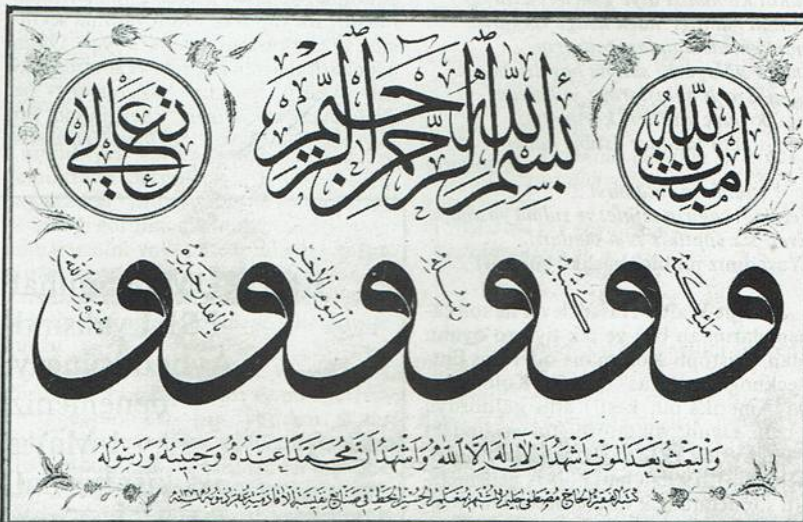 آمنت بالله
بسم الله الرحمن الرحيم
تعالى
و ملئكته و كتبه و رسله و اليوم الآخر و بالقدر خيره و شره من الله
والبعث بعد الموت اشهد ان لا اله الا الله واشهد ان محمدا عبده وحبيبه ورسوله
كتبه الفقير الحاج مصطفى حليم معلم الحسن الخط في صناي نفيسه